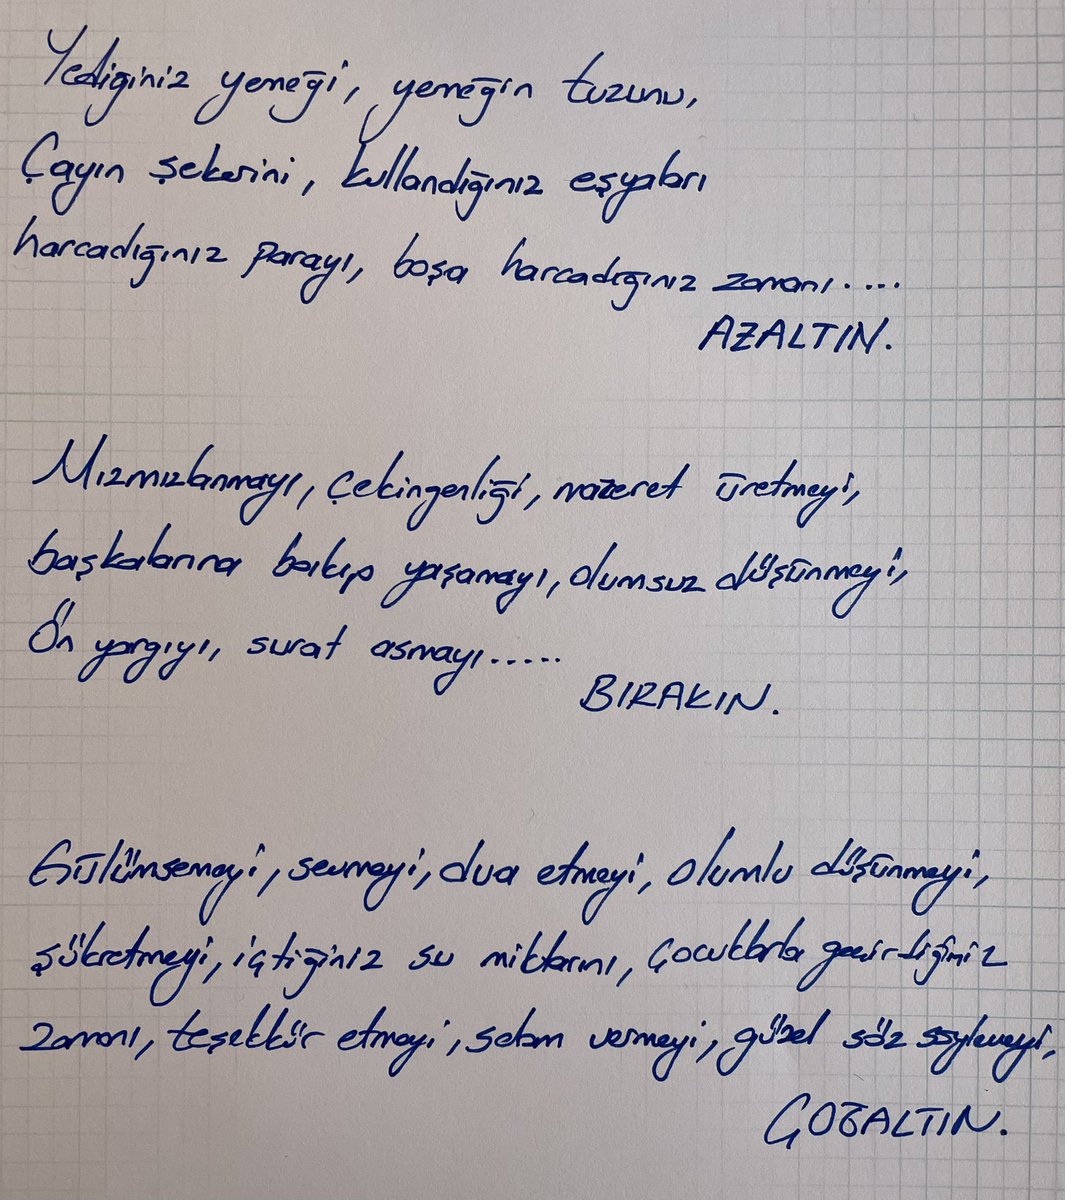 Yediğiniz yemeği, yemeğin tuzunu,
Çayın şekerini, kullandığınız eşyaları
harcadığınız parayı, boşa harcadığınız zamanı.....
AZALTIN.
Mızmızlanmayı, çekingenliği, mazeret üretmeyi,
başkalarına bakıp yaşamayı, olumsuz düşünmeyi,
Ön yargıyı, surat asmayı.....
BIRAKIN.
Gülümsemeyi, sevmeyi, dua etmeyi, olumlu düşünmeyi,
şükretmeyi, içtiğiniz su miktarını, çocuklarla geçirdiğiniz
zamanı, teşekkür etmeyi, selam vermeyi, güzel söz söylemeyi,
ÇOĞALTIN.